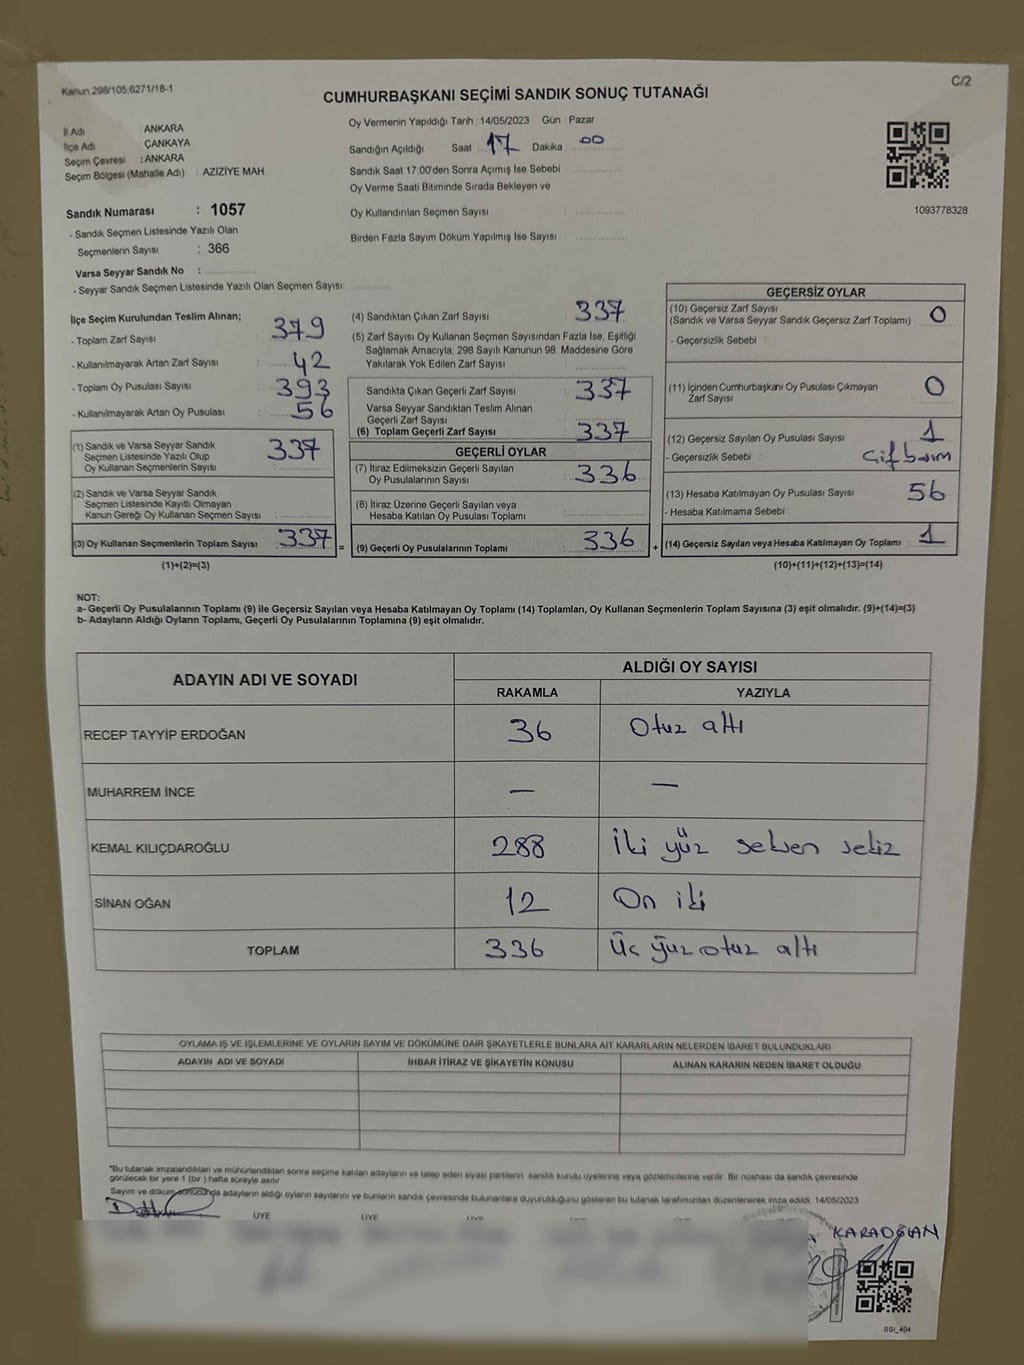 Kanun.298/105,6271/18-1
C/2
CUMHURBAŞKANI SEÇİMİ SANDIK SONUÇ TUTANAĞI
İl Adı : ANKARA
İlçe Adı : ÇANKAYA
Seçim Çevresi : ANKARA
Seçim Bölgesi (Mahalle Adı) : AZİZİYE MAH.
Sandık Numarası : 1057
- Sandık Seçmen Listesinde Yazılı Olan
Seçmenlerin Sayısı : 366
Varsa Seyyar Sandık No :
- Seyyar Sandık Seçmen Listesinde Yazılı Olan Seçmen Sayısı:
Oy Vermenin Yapıldığı Tarih : 14/05/2023 Gün : Pazar
Sandığın Açıldığı Saat 17 Dakika 00
Sandık Saat 17:00'den Sonra Açımış İse Sebebi
Oy Verme Saati Bitiminde Sırada Bekleyen ve
Oy Kullandırılan Seçmen Sayısı :
Birden Fazla Sayım Döküm Yapılmış İse Sayısı :
1093778328
İlçe Seçim Kurulundan Teslim Alınan;
- Toplam Zarf Sayısı : 379
- Kullanılmayarak Artan Zarf Sayısı : 42
- Toplam Oy Pusulası Sayısı : 393
- Kullanılmayarak Artan Oy Pusulası : 56
(1) Sandık ve Varsa Seyyar Sandık 337
Seçmen Listesinde Yazılı Olup
Oy Kullanan Seçmenlerin Sayısı :
(2) Sandık ve Varsa Seyyar Sandık
Seçmen Listesinde Kayıtlı Olmayan
Kanun Gereği Oy Kullanan Seçmen Sayısı :
(3) Oy Kullanan Seçmenlerin Toplam Sayısı : 337 =
(1)+(2)=(3)
(4) Sandıktan Çıkan Zarf Sayısı : 337
(5) Zarf Sayısı Oy Kullanan Seçmen Sayısından Fazla İse, Eşitliği
Sağlamak Amacıyla, 298 Sayılı Kanunun 98. Maddesine Göre
Yakılarak Yok Edilen Zarf Sayısı :
Sandıkta Çıkan Geçerli Zarf Sayısı : 337
Varsa Seyyar Sandıktan Teslim Alınan
Geçerli Zarf Sayısı :
(6) Toplam Geçerli Zarf Sayısı : 337
GEÇERLİ OYLAR
(7) İtiraz Edilmeksizin Geçerli Sayılan 336
Oy Pusulalarının Sayısı :
(8) İtiraz Üzerine Geçerli Sayılan veya
Hesaba Katılan Oy Pusulası Toplamı :
(9) Geçerli Oy Pusulalarının Toplamı : 336 +
GEÇERSİZ OYLAR
(10) Geçersiz Zarf Sayısı
(Sandık ve Varsa Seyyar Sandık Geçersiz Zarf Toplamı) : 0
- Geçersizlik Sebebi :
(11) İçinden Cumhurbaşkanı Oy Pusulası Çıkmayan 0
Zarf Sayısı :
(12) Geçersiz Sayılan Oy Pusulası Sayısı : 1
- Geçersizlik Sebebi :
(13) Hesaba Katılmayan Oy Pusulası Sayısı : 56
- Hesaba Katılmama Sebebi :
(14) Geçersiz Sayılan veya Hesaba Katılmayan Oy Toplamı : 1
(10)+(11)+(12)+(13)=(14)
NOT:
a- Geçerli Oy Pusulalarının Toplamı (9) ile Geçersiz Sayılan veya Hesaba Katılmayan Oy Toplamı (14) Toplamları, Oy Kullanan Seçmenlerin Toplam Sayısına (3) eşit olmalıdır. (9)+(14)=(3)
b- Adayların Aldığı Oyların Toplamı, Geçerli Oy Pusulalarının Toplamına (9) eşit olmalıdır.
ADAYIN ADI VE SOYADI ALDIĞI OY SAYISI
RAKAMLA YAZIYLA
RECEP TAYYİP ERDOĞAN 36 Otuz altı
MUHARREM İNCE — —
KEMAL KILIÇDAROĞLU 288 İki yüz seksen sekiz
SİNAN OĞAN 12 On iki
TOPLAM 336 Üç yüz otuz altı
OYLAMA İŞ VE İŞLEMLERİNE VE OYLARIN SAYIM VE DÖKÜMÜNE DAİR ŞİKAYETLERLE BUNLARA AİT KARARLARIN NELERDEN İBARET BULUNDUKLARI
ADAYIN ADI VE SOYADI İHBAR İTİRAZ VE ŞİKAYETİN KONUSU ALINAN KARARIN NEDEN İBARET OLDUĞU
*Bu tutanak imzalandıktan ve mühürlendikten sonra seçime katılan adayların ve talep eden siyasi partilerin sandık kurulu üyelerine veya gözlemcilerine verilir. Bir nüshası da sandık çevresinde
görülecek bir yere 1 (bir ) hafta süreyle asılır.
Sayım ve döküm sonucunda adayların aldığı oyların sayılarını ve bunların sandık çevresinde bulunanlara duyurulduğunu gösteren bu tutanak tarafımızdan düzenlenerek imza edildi. 14/05/2023
ÜYE ÜYE ÜYE
KARADOĞAN
GSI_404